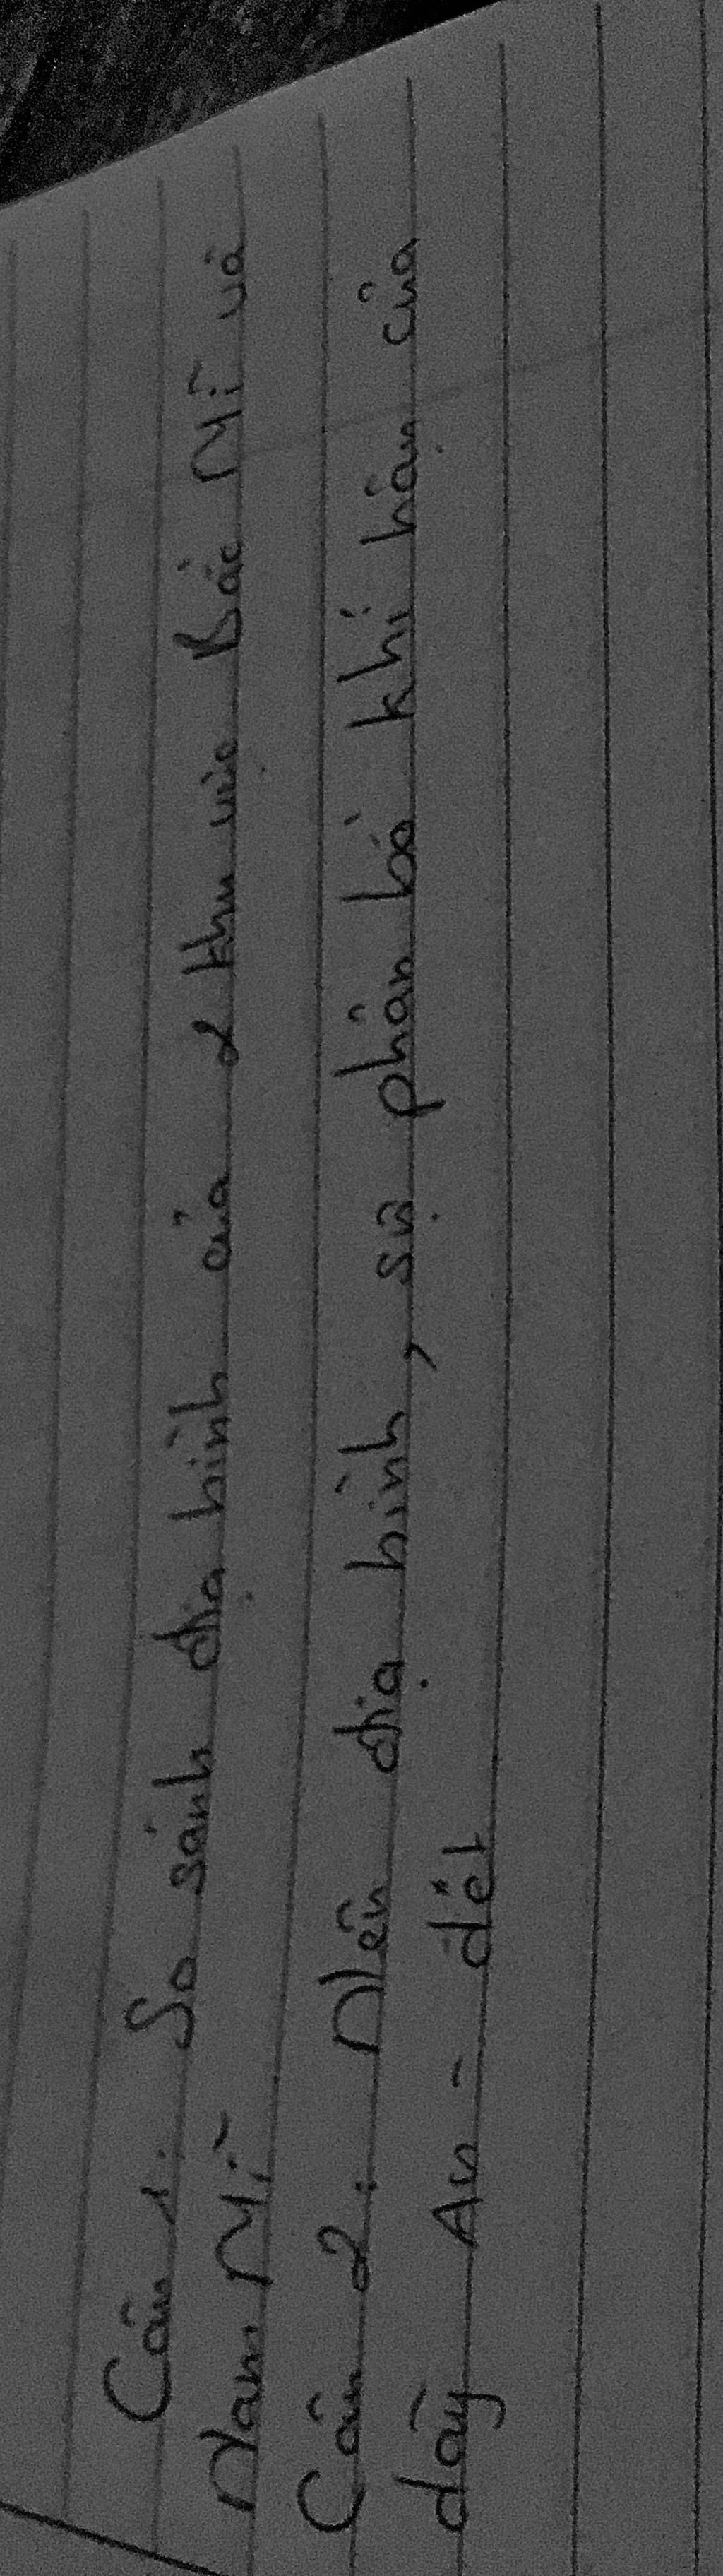 Câu 1: So sánh địa hình của 2 khu vực Bắc Mĩ và
Nam Mĩ
Câu 2: Nêu địa hình, sự phân bố khí hậu của
dãy An - đét